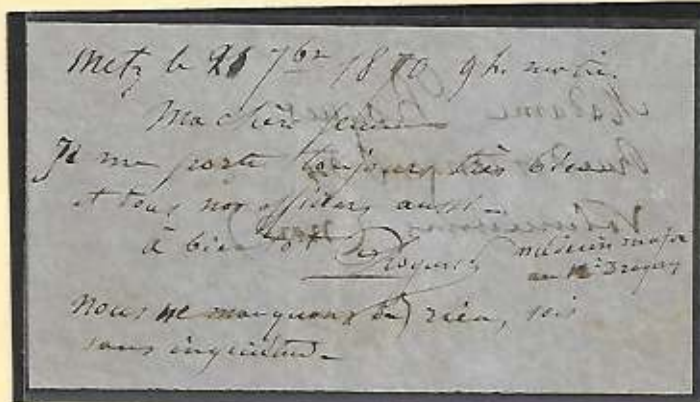 Metz le 21 7bre 1870 9 h. matin.
Ma chère femme
Je me porte toujours très bien
et tous nos officiers aussi.
à bientôt
médecin major
au Dragons
Nous ne manquons de rien, sois
sans inquiétude.